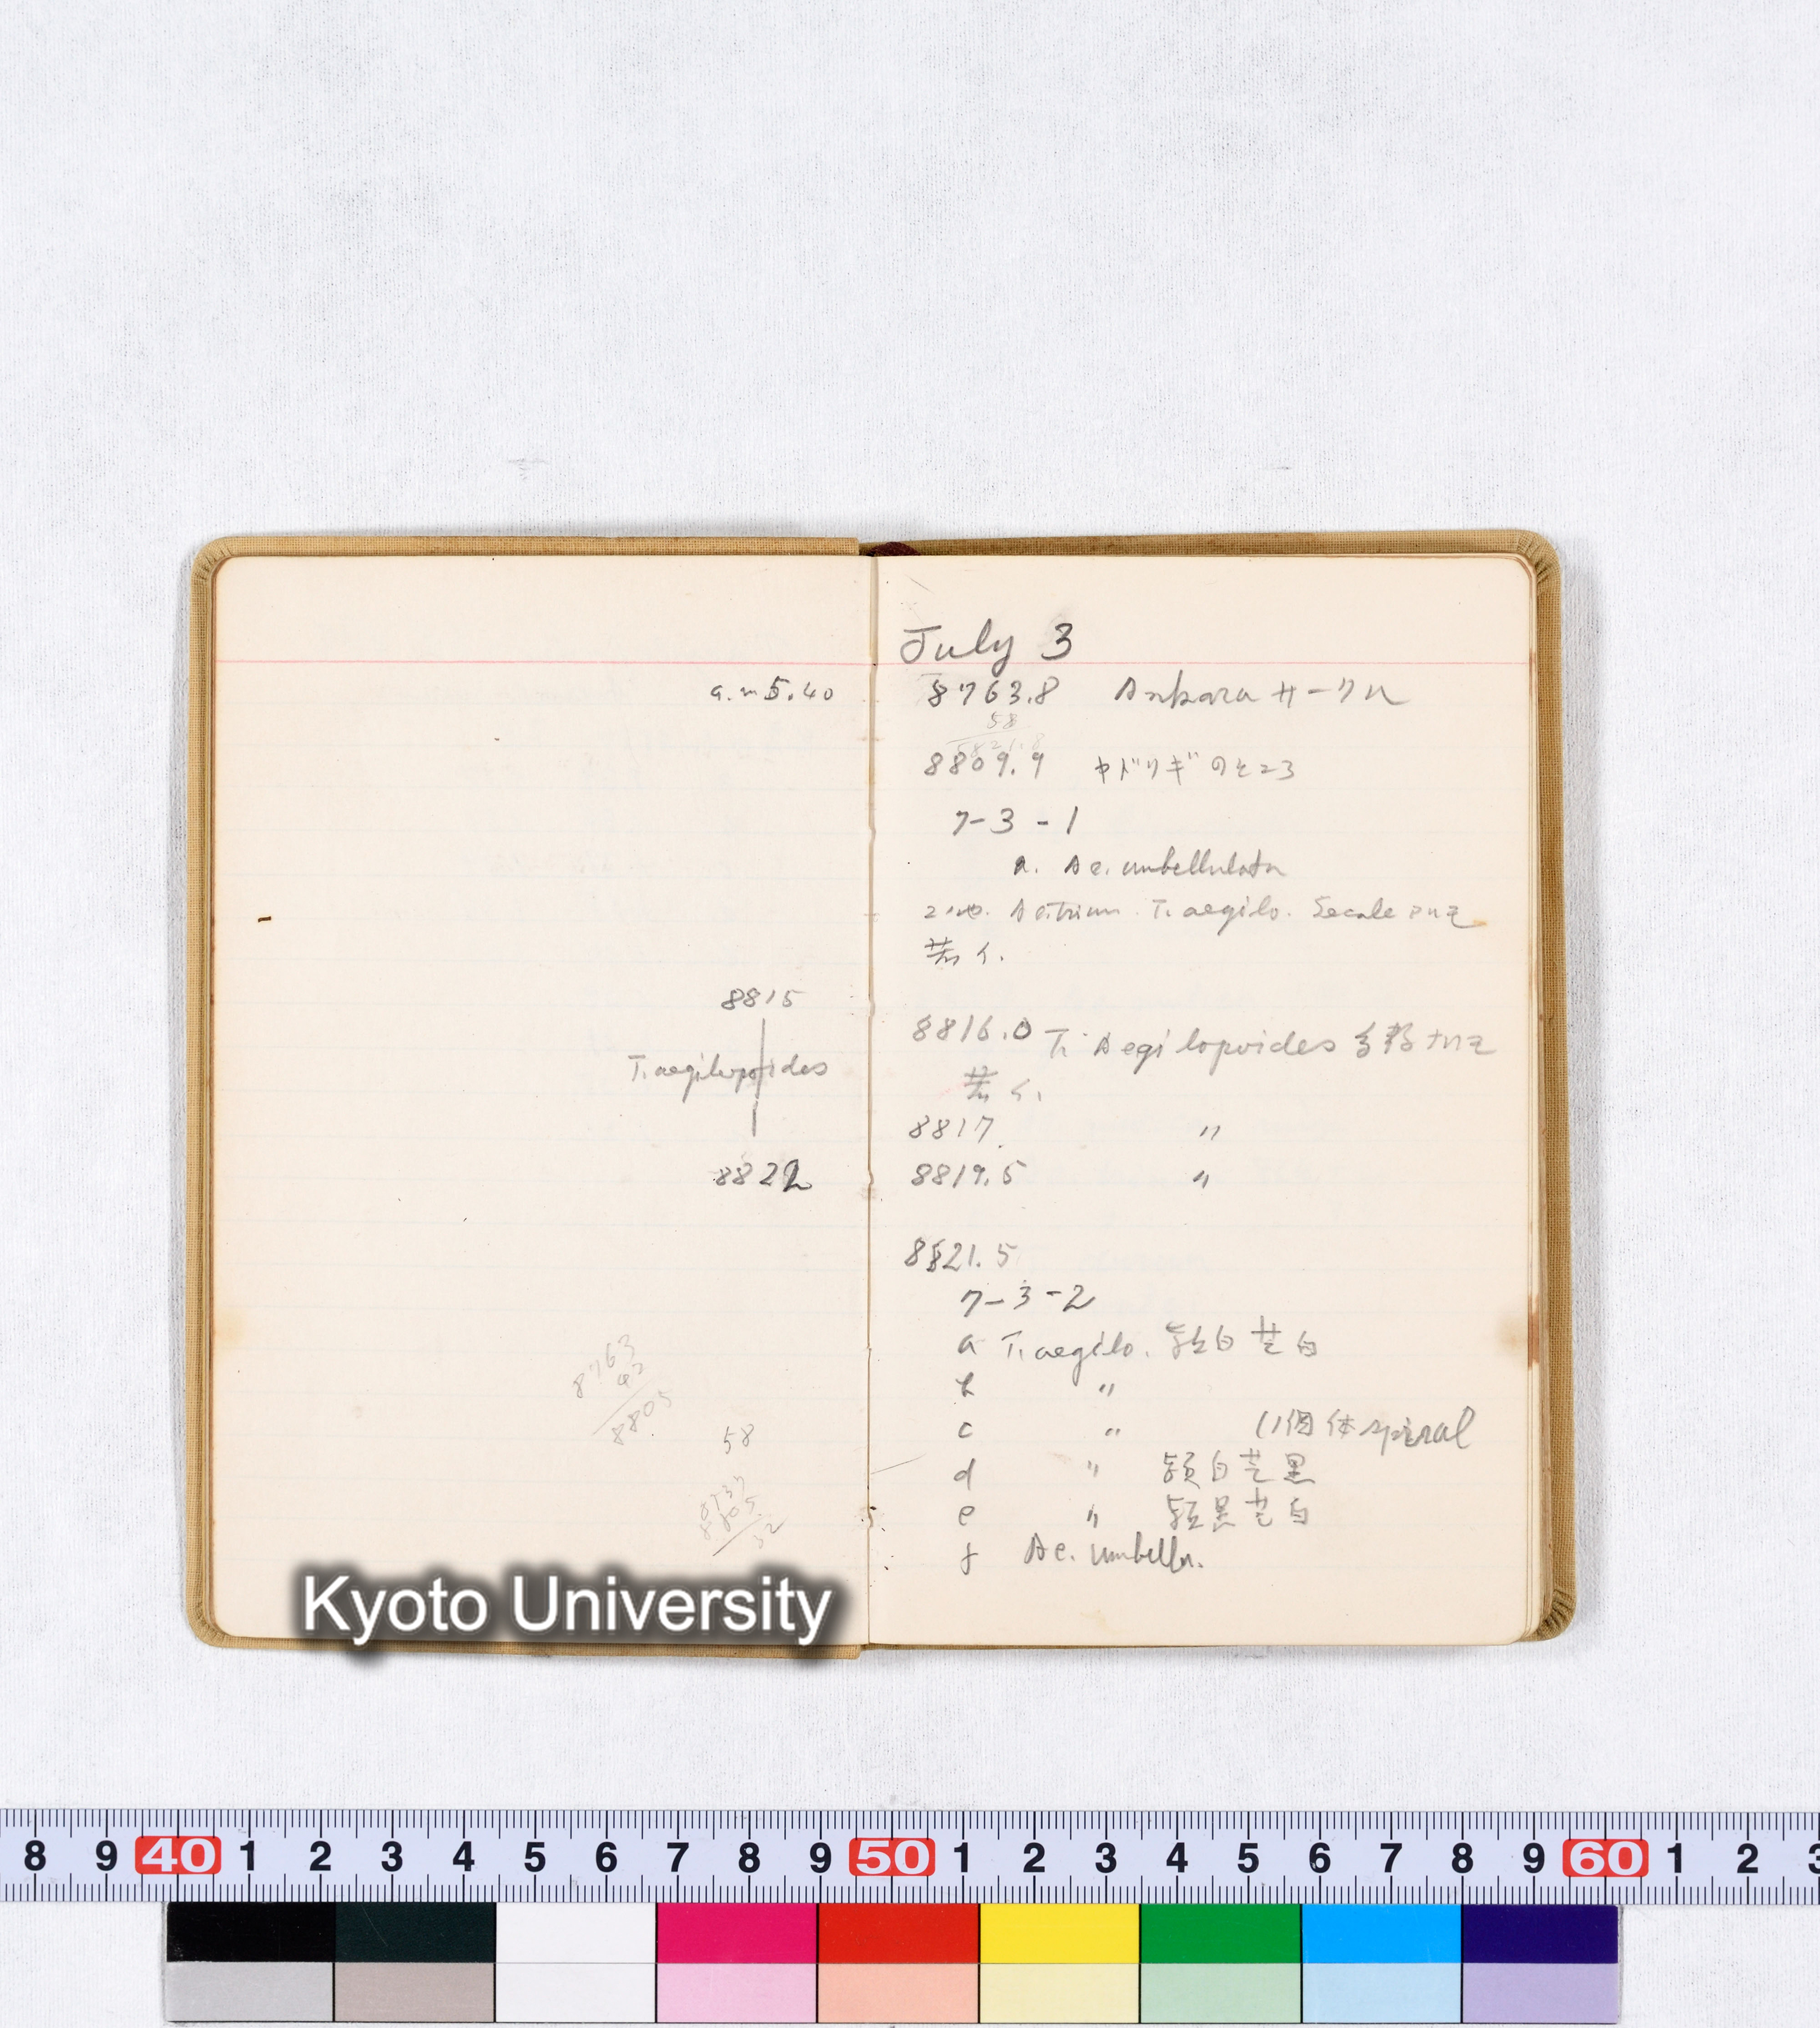 a.m 5.40
8815
T. aegilopoides
8822
8763
42
8805
58
July 3
8763.8 Ankara サークル
58
8821.8
8809.9 ヤドリギのところ
7-3-1
a. Ae. umbellulata
Ae. trium. T. aegilo. Secale アルモ
若イ.
8816.0 T. Aegilopoides 多款ナルモ
若イ.
8817 〃
8819.5 〃
8821.5
7-3-2
a T. aegilo. 穎白芒白
b 〃
c 〃 (1個体 spiral
d 〃 穎白芒黒
e 〃 穎黒芒白
f Ae. umbella.
Kyoto University
8 9 40 1 2 3 4 5 6 7 8 9 50 1 2 3 4 5 6 7 8 9 60 1 2 3